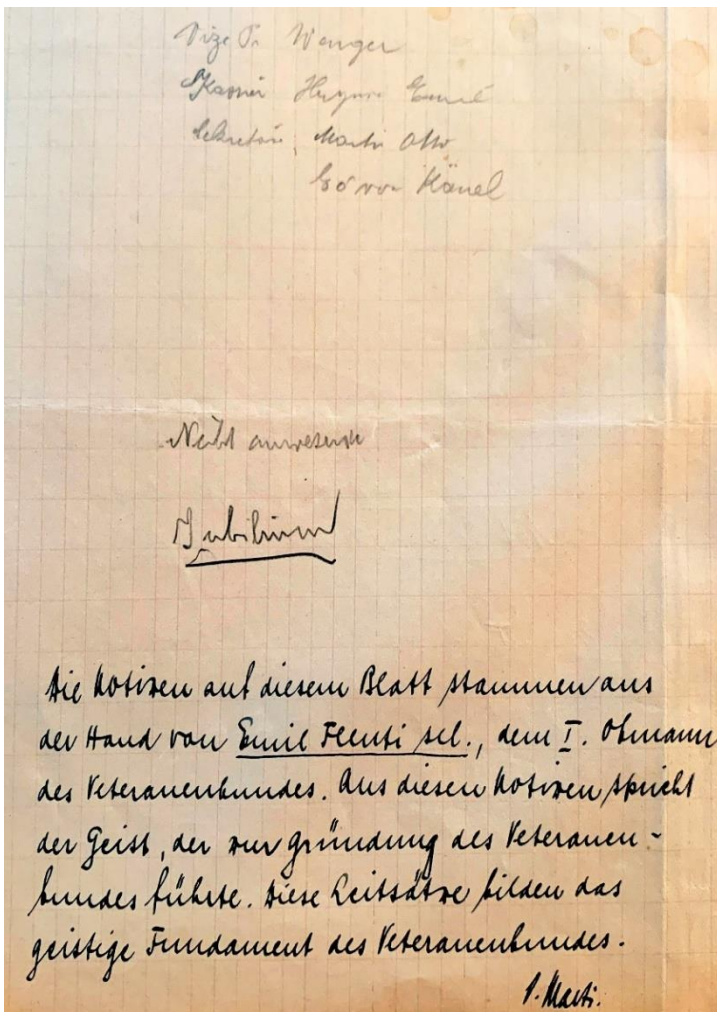 Vize Pr. Wenger
Kassier Emil
Sekretär Marti Otto
von Känel
Nicht anwesende
Jubiläum
Die Notizen auf diesem Blatt stammen aus
der Hand von Emil sel., dem I. Obmann
des Veteranenbundes. Aus diesen Notizen spricht
der Geist, der zur Gründung des Veteranen-
bundes führte. Diese Leitsätze bilden das
geistige Fundament des Veteranenbundes.
Marti.